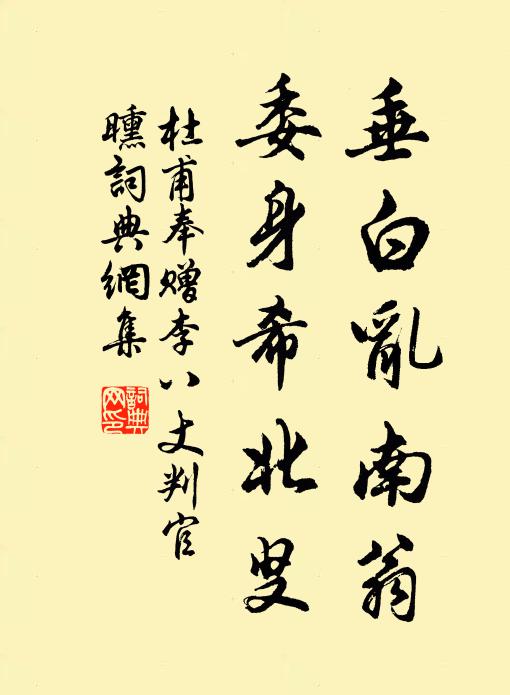 垂白亂南翁
委身希北叟
杜甫奉赠李八丈判官
曛詞典網集
詞典
网印